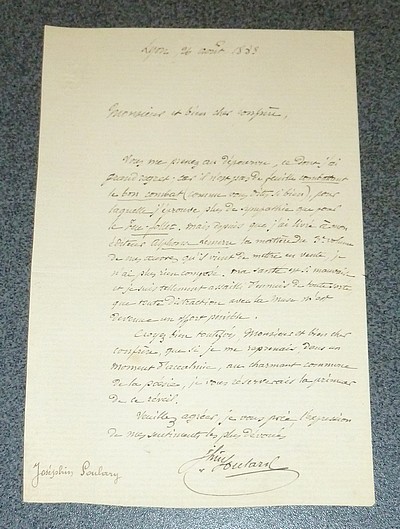 Lyon, 24 août 1883
Monsieur et bien cher confrère,
Vous me prenez au dépourvu, ce dont j'ai
grand regret, car il n'est pas de feuille combattant
le bon combat (comme vous dites si bien), pour
laquelle j'éprouve plus de sympathie que pour
le feu-follet. mais depuis que j'ai livré à mon
éditeur Alphonse Lemerre la matière du 3e volume
de mes œuvres qu'il vient de mettre en vente je
n'ai plus rien composé. ma santé est si mauvaise
et je suis tellement assailli d'ennuis de toute sorte
que toute distraction avec la muse m'est
devenue un effort pénible.
Croyez bien toutefois, Monsieur et bien cher
confrère, que si je me reprenais, dans un
moment d'accalmie, au charmant commerce
de la poésie, je vous réserverais la primeur
de ce réveil.
Veuillez agréer, je vous prie l'expression
de mes sentiments les plus dévoués
Joséphin Soulary
Joséphin Soulary